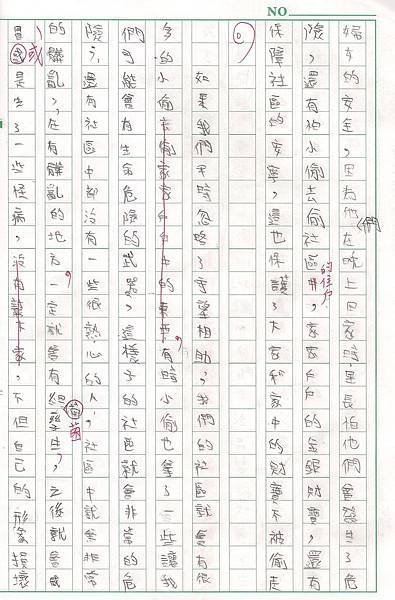 NO.
婦女的安全,因為他們在晚上回家時,里長怕他們會發生了危
險,還有怕小偷去偷社區的住戶,家家戶戶的金銀財寶,還有
保障社區的安寧,這也保護了大家和家中的財寶不被偷走
。
如果我們平時忽略了守望相助,我們的社區就會有很
多的小偷去偷家家戶戶的東西,有時小偷也拿了一些讓我
們可能會有生命危險的武器,這樣子的社區就會非常的危
險,還有社區中都沒有一些很熱心的人,社區中就會非常
的髒亂,在有髒亂的地方,一定就會有細菌生,之後就會感
冒,或是生了一些怪病,沒有讓大家,不但自己的形象損壞